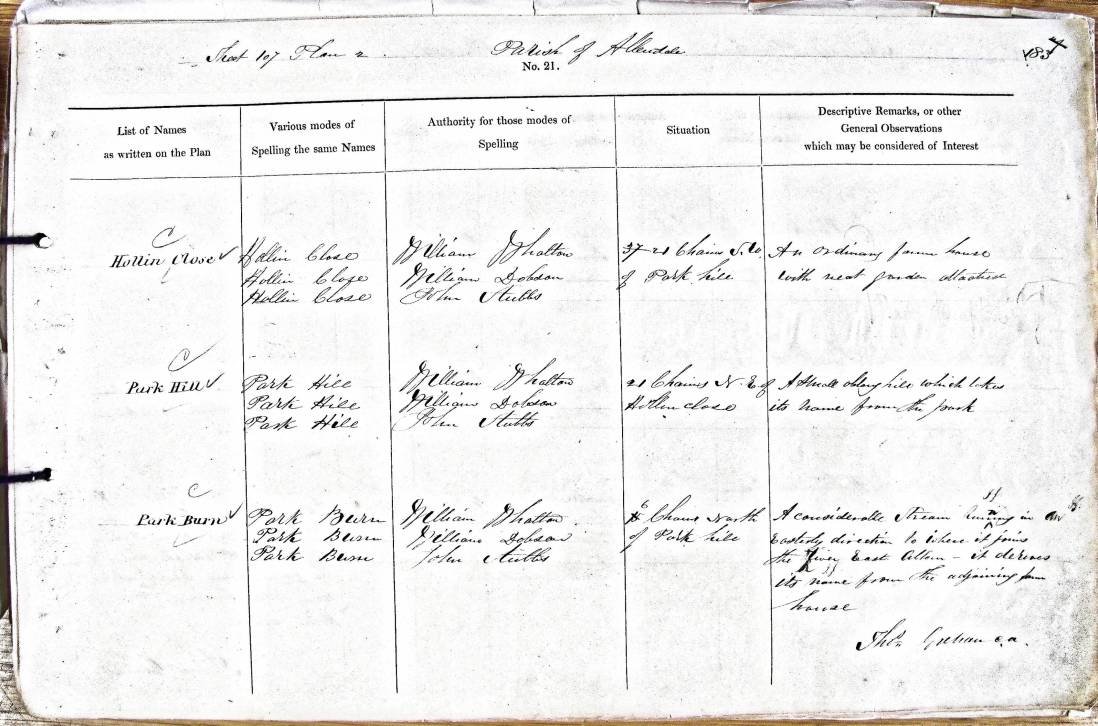 Sheet 107 Plan 2. Parish of Allendale
No. 21.
183
List of Names
as written on the Plan
Various modes of
Spelling the same Names
Authority for those modes of
Spelling
Situation
Descriptive Remarks, or other
General Observations
which may be considered of Interest
Hollin Close
Hollin Close
Hollin Close
Hollin Close
William Whatton
William Dobson
John Stubbs
21 Chains S.W.
of Park hill
An ordinary farm house
with neat garden attached
Park Hill
Park Hill
Park Hill
Park Hill
William Whatton
William Dobson
John Stubbs
21 Chains N.E of
Hollin close
A Small oblong hill which takes
its name from the park
Park Burn
Park Burn
Park Burn
Park Burn
William Whatton
William Dobson
John Stubbs
Chains North
of Park hill
A considerable Stream running in an
Easterly direction to where it joins
the River East Allen - it derives
its name from the adjoining farm
house
Thos. Graham c.a.